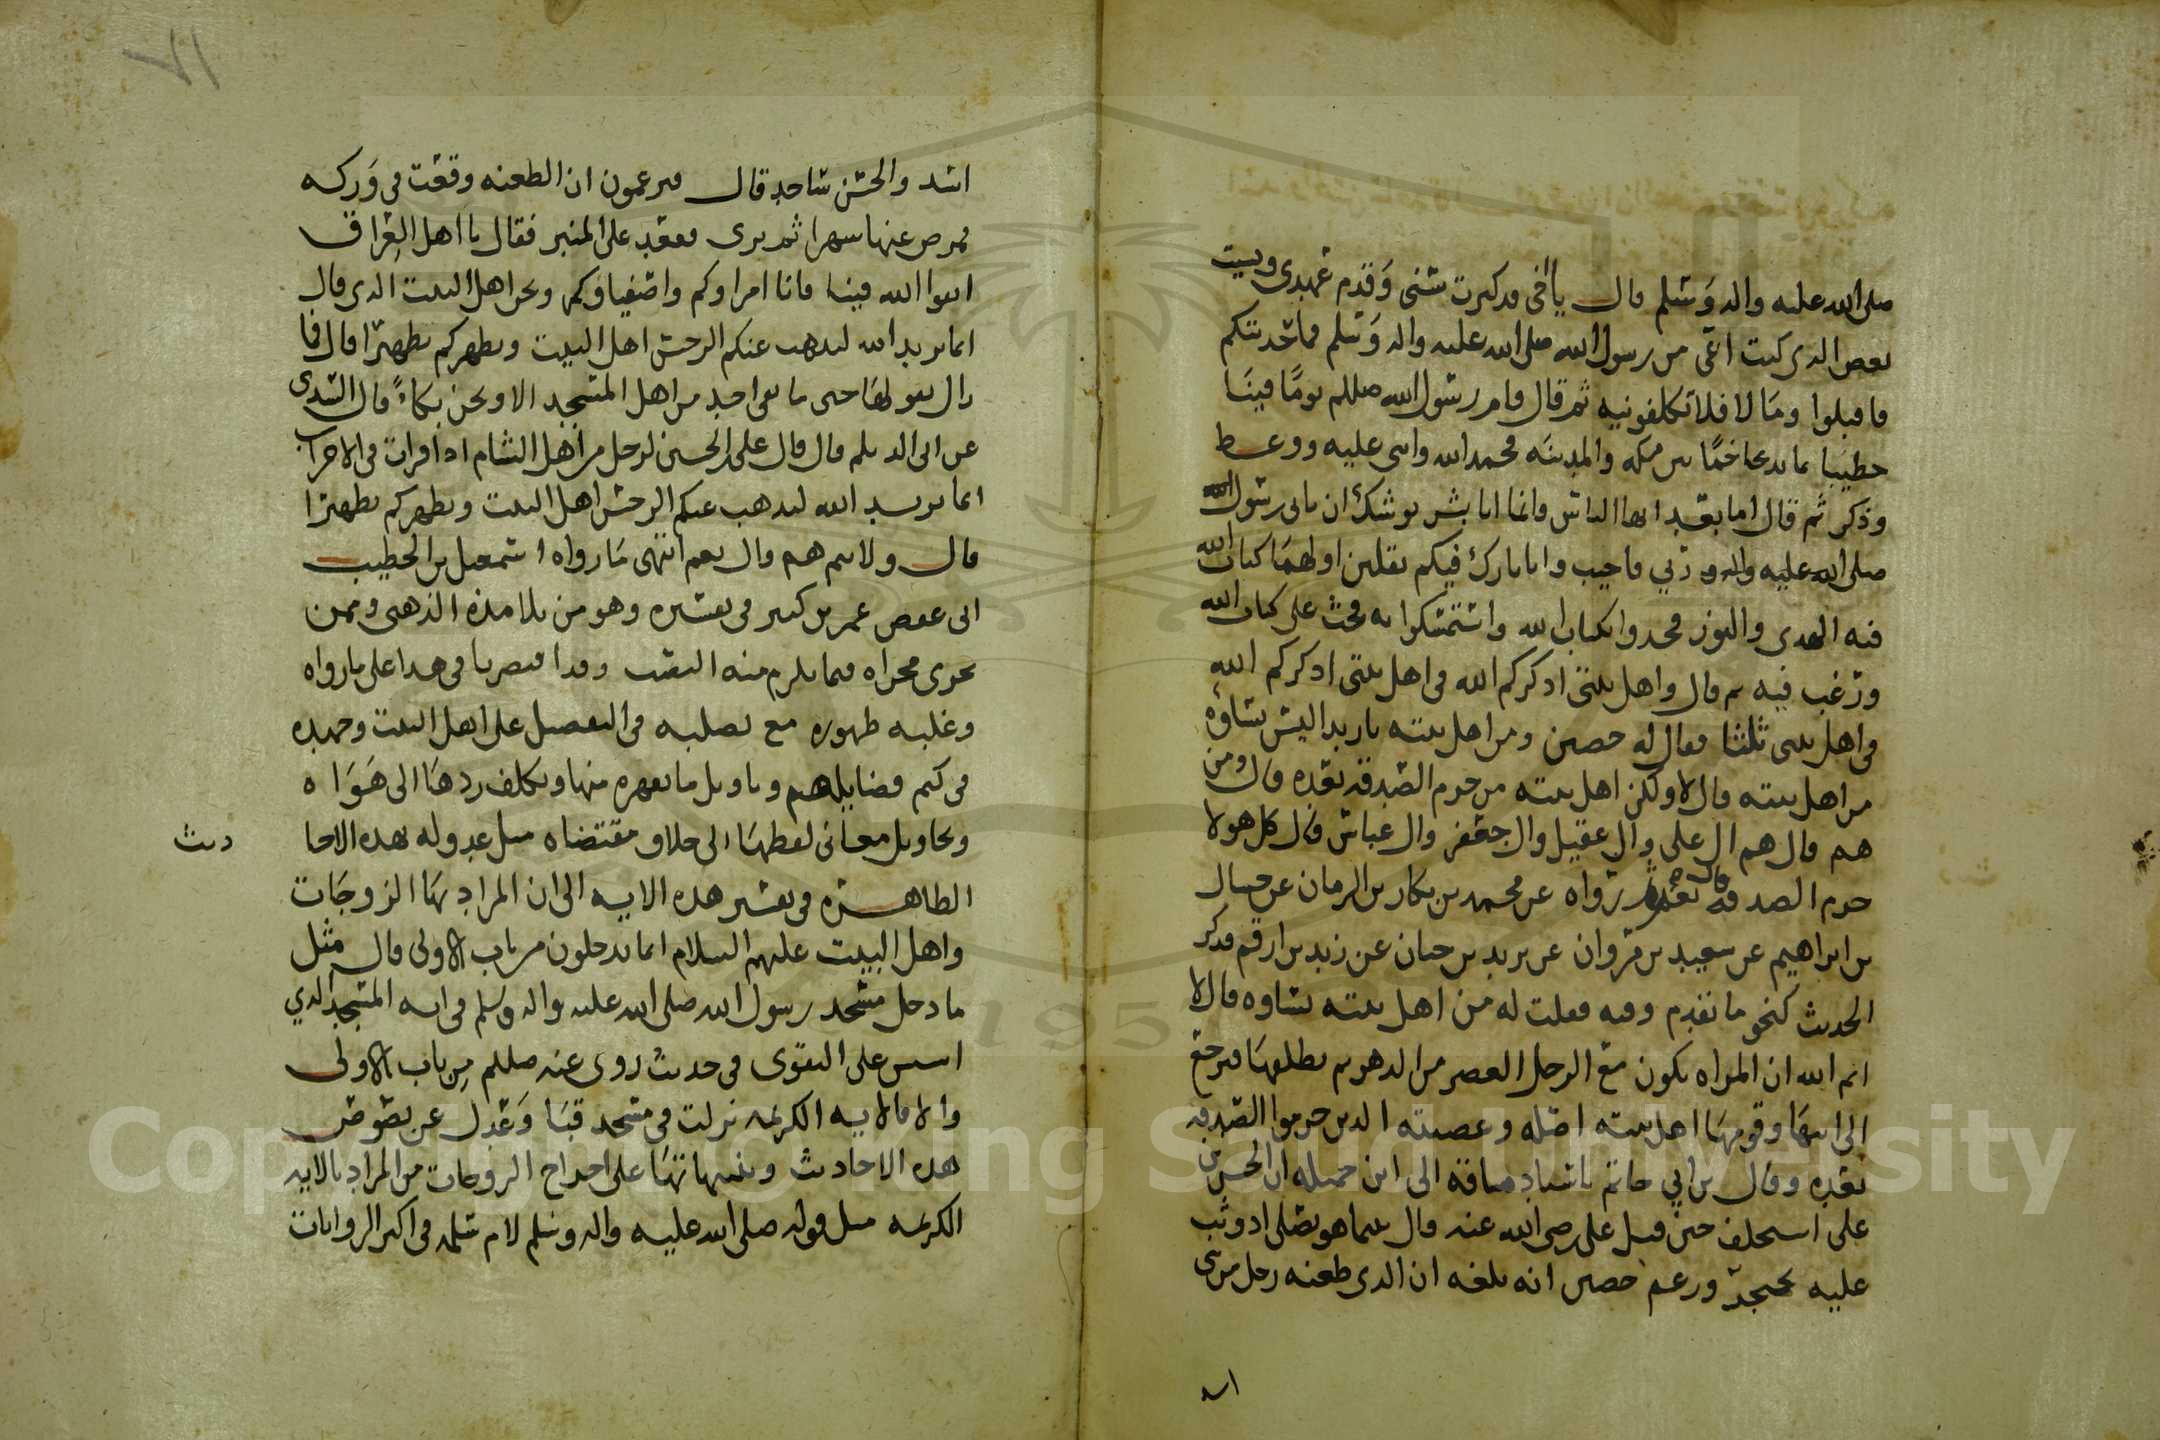 صلى الله عليه واله وسلم قال يا اخى قد كبرت سنى وقدم عهدى ونسيت
بعض الذى كنت اعى من رسول الله صلى الله عليه واله وسلم فما حدثتكم
فاقبلوا وما لا فلا تكلفونيه ثم قال قام رسول الله صللم يوما فينا
خطيبا بما يدعا خمًا بين مكه والمدينه فحمد الله واثنى عليه ووعظ
وذكر ثم قال اما بعد ايها الناس وانما انا بشر يوشك ان ياتى رسول
صلى الله عليه واله ربي فاجيب وانا تارك فيكم ثقلين اولهما كتاب الله
فيه الهدى والنور فخذوا بكتاب الله واستمسكوا به فحث على كتاب الله
ورغب فيه ثم قال واهل بيتى اذكركم الله فى اهل بيتى اذكركم الله
فى اهل بيتى ثلثا فقال له حصين ومن اهل بيته يا زيد اليس نساؤه
من اهل بيته قال لا ولكن اهل بيته من حرم الصدقه بعده قال ومن
هم قال هم ال على وال عقيل وال جعفر وال عباس قال كل هولا
حرم الصدقه بعده قال رواه عن محمد بن بكار بن الريان عن حسان
بن ابراهيم عن سعيد بن مزوان عن يزيد بن حيان عن زيد بن ارقم فذكر
الحديث كنحو ما تقدم وفيه فقلت له من اهل بيته نساوه قال لا
ايم الله ان المراه تكون مع الرجل العصر من الدهر ثم يطلقها فترجع
الى ابيها وقومها اهل بيته اصله وعصبته الذين حرموا الصدقه
بعده وقال بن ابي حاتم باسناد ساقه الى ابن جميله ان الحسن بن
على استخلف حين قتل على رضى الله عنه قال بينما هو يصلى اذ وثب
عليه بخنجر وزعم حصين انه بلغه ان الذى طعنه رجل من بنى
اسد
اسد والحسن ساجد قال فيزعمون ان الطعنه وقعت فى وركه
فمرض عنها شهرا ثم برى فقعد على المنبر فقال يا اهل العراق
اتقوا الله فينا فانا امراوكم واضيافكم ونحن اهل البيت الذى قال
انما يريد الله ليذهب عنكم الرجس اهل البيت ويطهركم تطهيرا قال فما
زال يقولها حتى ما بقى احد من اهل المسجد الا ونحن بكاءً قال السدى
عن ابى الديلم قال قال على بن الحسين لرجل من اهل الشام اما قرات فى الاحزاب
انما يريد الله ليذهب عنكم الرجس اهل البيت ويطهركم تطهيرا
قال ولانتم هم قال نعم انتهى ما رواه اسمعيل بن الخطيب
ابى حفص عمر بن كثير فى تفسيره وهو من تلامذة الذهبى وممن
يجرى مجراه فيما يلزم منه النصب وقد اقتصرنا فى هذا على ما رواه
وغلبه ظهوره مع تصلبه فى التعصيل على اهل البيت وجهده
فى كتم فضايلهم وتاويل ما بهره منها وتكلف ردها الى هواه
وتحاويل معانى لفظها الى خلاف مقتضاه مثل عدوله بهذه الاحا
ديث
الطاهره فى تفسير هذه الايه الى ان المراد بها الزوجات
واهل البيت عليهم السلام انما يدخلون من باب الاولى قال مثل
ما دخل مسجد رسول الله صلى الله عليه واله وسلم فى ايه المسجد الذي
اسس على التقوى فى حديث روى عنه صللم من باب الاولى
والا فالايه الكريمه نزلت فى مسجد قبا وعدل عن نصوص
هذه الاحاديث وتنبيهاتها على اخراج الزوجات من المراد بالايه
الكريمه مثل قوله صلى الله عليه واله وسلم لام سلمه فى اكثر الروايات